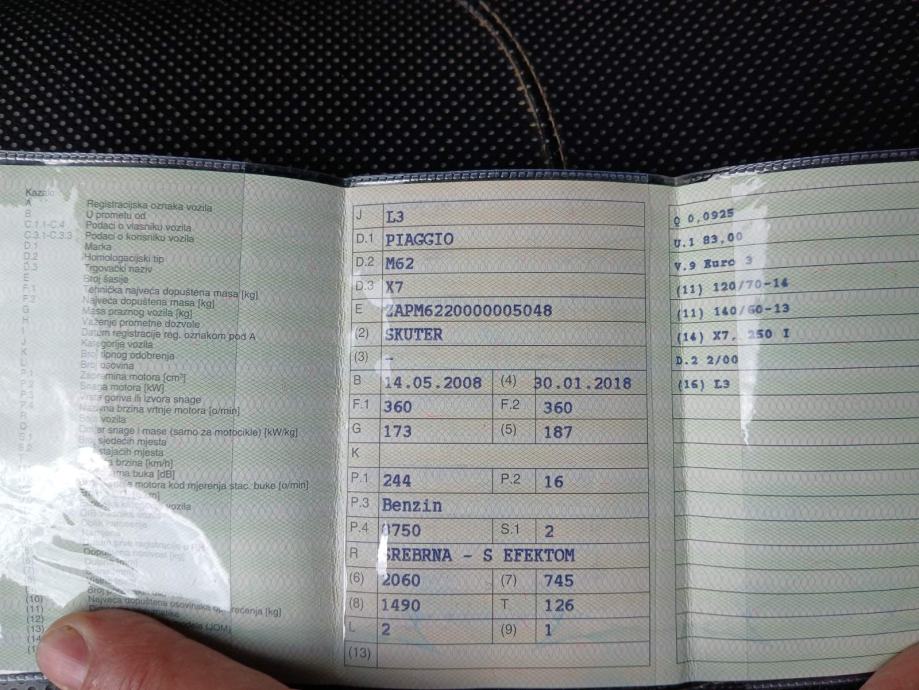 A Registracijska oznaka vozila
B U prometu od
C.1.1-C.4 Podaci o vlasniku vozila
C.3.1-C.3.3 Podaci o korisniku vozila
D.1 Marka
D.2 Homologacijski tip
D.3 Trgovački naziv
E Broj šasije
F.1 Tehnička najveća dopuštena masa [kg]
F.2 Najveća dopuštena masa [kg]
G Masa praznog vozila [kg]
H Važenje prometne dozvole
I Datum registracije reg. oznakom pod A
J Kategorija vozila
K Broj tipnog odobrenja
L Broj osovina
Zapremina motora [cm³]
P.2 Snaga motora [kW]
P.3 Vrsta goriva ili izvora snage
Nazivna brzina vrtnje motora [o/min]
vozila
snage i mase (samo za motocikle) [kW/kg]
S.1 Broj sjedećih mjesta
stajaćih mjesta
brzina [km/h]
buka [dB]
motora kod mjerenja stac. buke [o/min]
vozila
(10) Najveća dopuštena osovinska [kg]
(11)
(12)
(13)
J L3
D.1 PIAGGIO
D.2 M62
D.3 X7
E ZAPM6220000005048
(2) SKUTER
(3) -
B 14.05.2008 (4) 30.01.2018
F.1 360 F.2 360
G 173 (5) 187
K
P.1 244 P.2 16
P.3 Benzin
P.4 8750 S.1 2
R SREBRNA - S EFEKTOM
(6) 2060 (7) 745
(8) 1490 T 126
L 2 (9) 1
(13)
Q 0,0925
U.1 83,00
V.9 Euro 3
(11) 120/70-14
(11) 140/60-13
(14) X7, 250 I
D.2 2/00
(16) L3